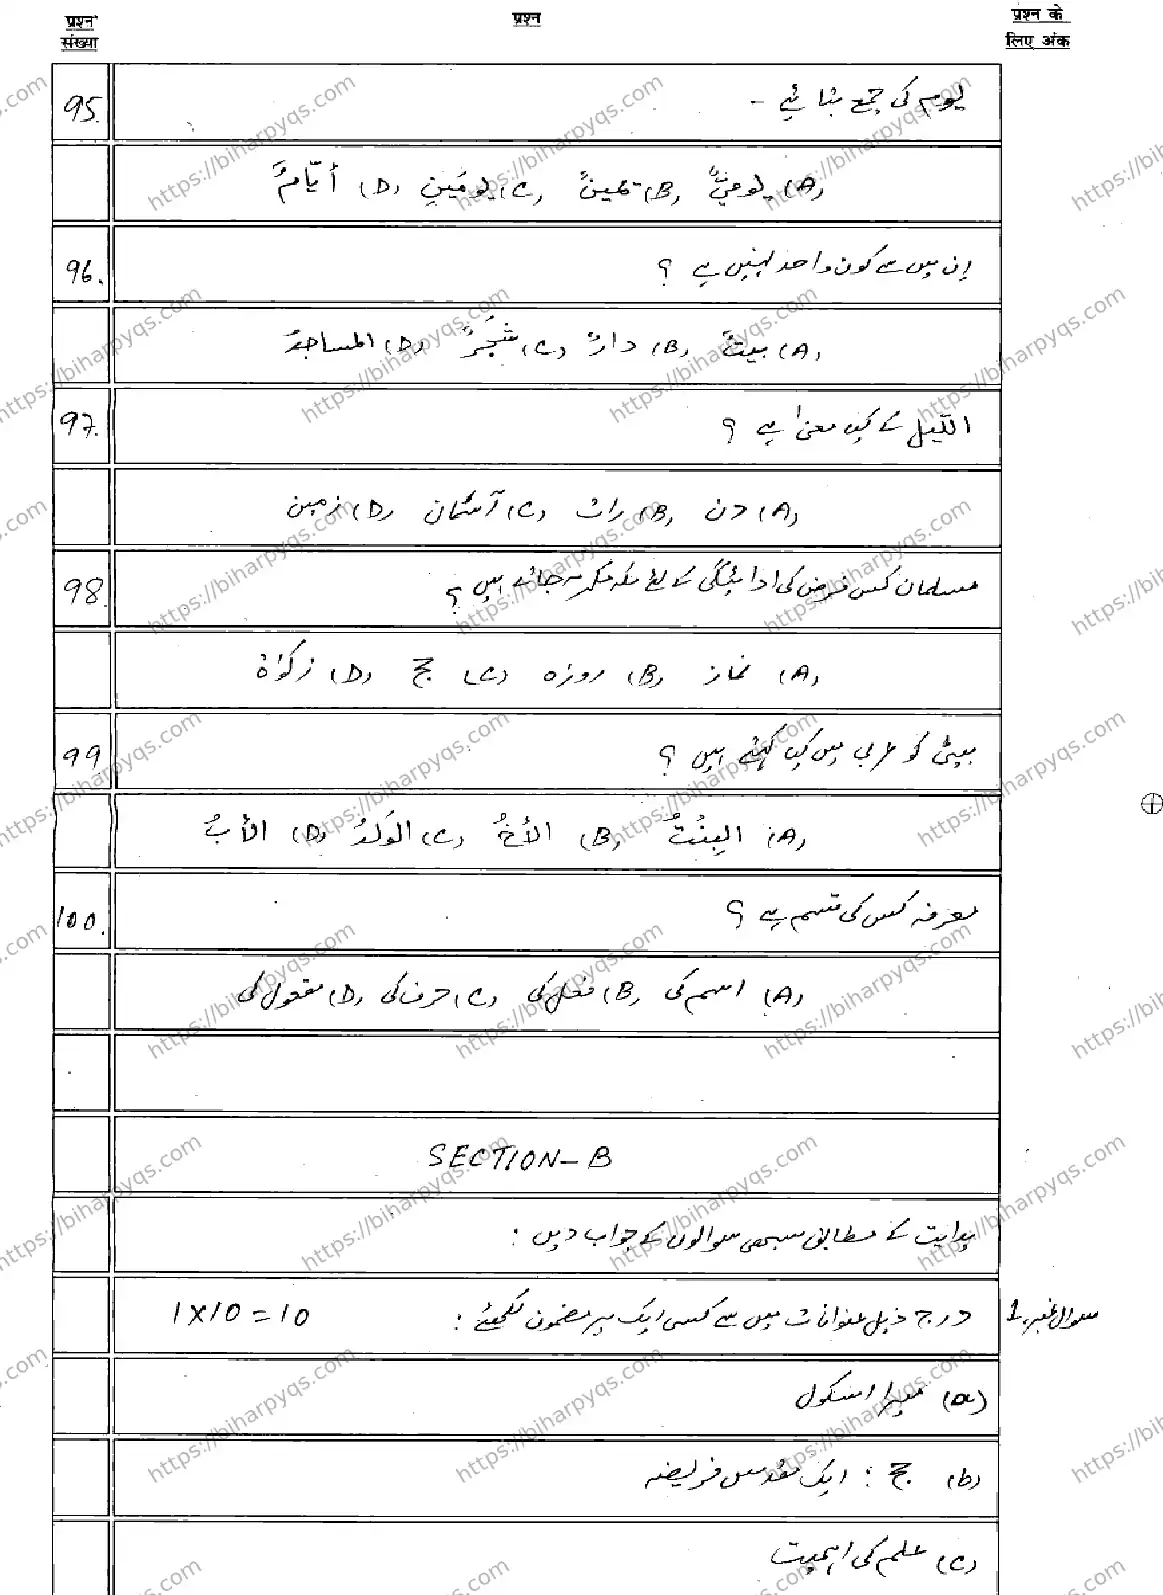 प्रश्न संख्या
प्रश्न
प्रश्न के लिए अंक
95. یوم کی جمع بنائیے -
(A) یومیٌ (B) یمینٌ (C) یومَینِ (D) أیّامٌ
96. اِن میں سے کون واحد نہیں ہے ؟
(A) بیتٌ (B) دارٌ (C) شَجَرٌ (D) المساجدُ
97. اللّیل کے کیا معنیٰ ہے ؟
(A) دن (B) رات (C) آسمان (D) زمین
98. مسلمان کس فرض کی ادائیگی کے لئے مکہ مکرمہ جاتے ہیں ؟
(A) نماز (B) روزہ (C) حج (D) زکوٰۃ
99 بیٹی کو عربی میں کیا کہتے ہیں ؟
(A) البِنْتُ (B) الأخُ (C) الوَلَدُ (D) الأبُ
100. معرفہ کس کی قسم ہے ؟
(A) اسم کی (B) فعل کی (C) حرف کی (D) مفعول کی
SECTION-B
ہدایت کے مطابق سبھی سوالوں کے جواب دیں :
سوال نمبر 1 درج ذیل عنوانات میں سے کسی ایک پر مضمون لکھئے : 1X10=10
(a) میرا اسکول
(b) حج : ایک مقدس فریضہ
(c) علم کی اہمیت
https://biharpyqs.com